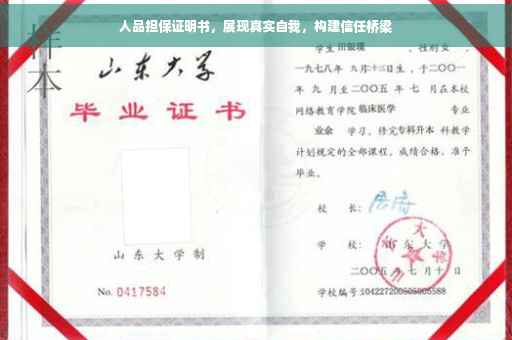 人品担保证明书，展现真实自我，构建信任桥梁
样本
山东大学
毕业证书
山东大学制
No. 0417584
学生 性别女，
一九七八年 九月十三日生，于二〇〇一
年 九 月至二〇〇五 年 七 月在本校
网络教育学院 临床医学 专业
业余 学习，修完 专科升本 科教学
计划规定的全部课程，成绩合格，准予
毕业。
校 长：
学 校： 山东大学
二〇〇五 年 七 月 十 日
学校编号: